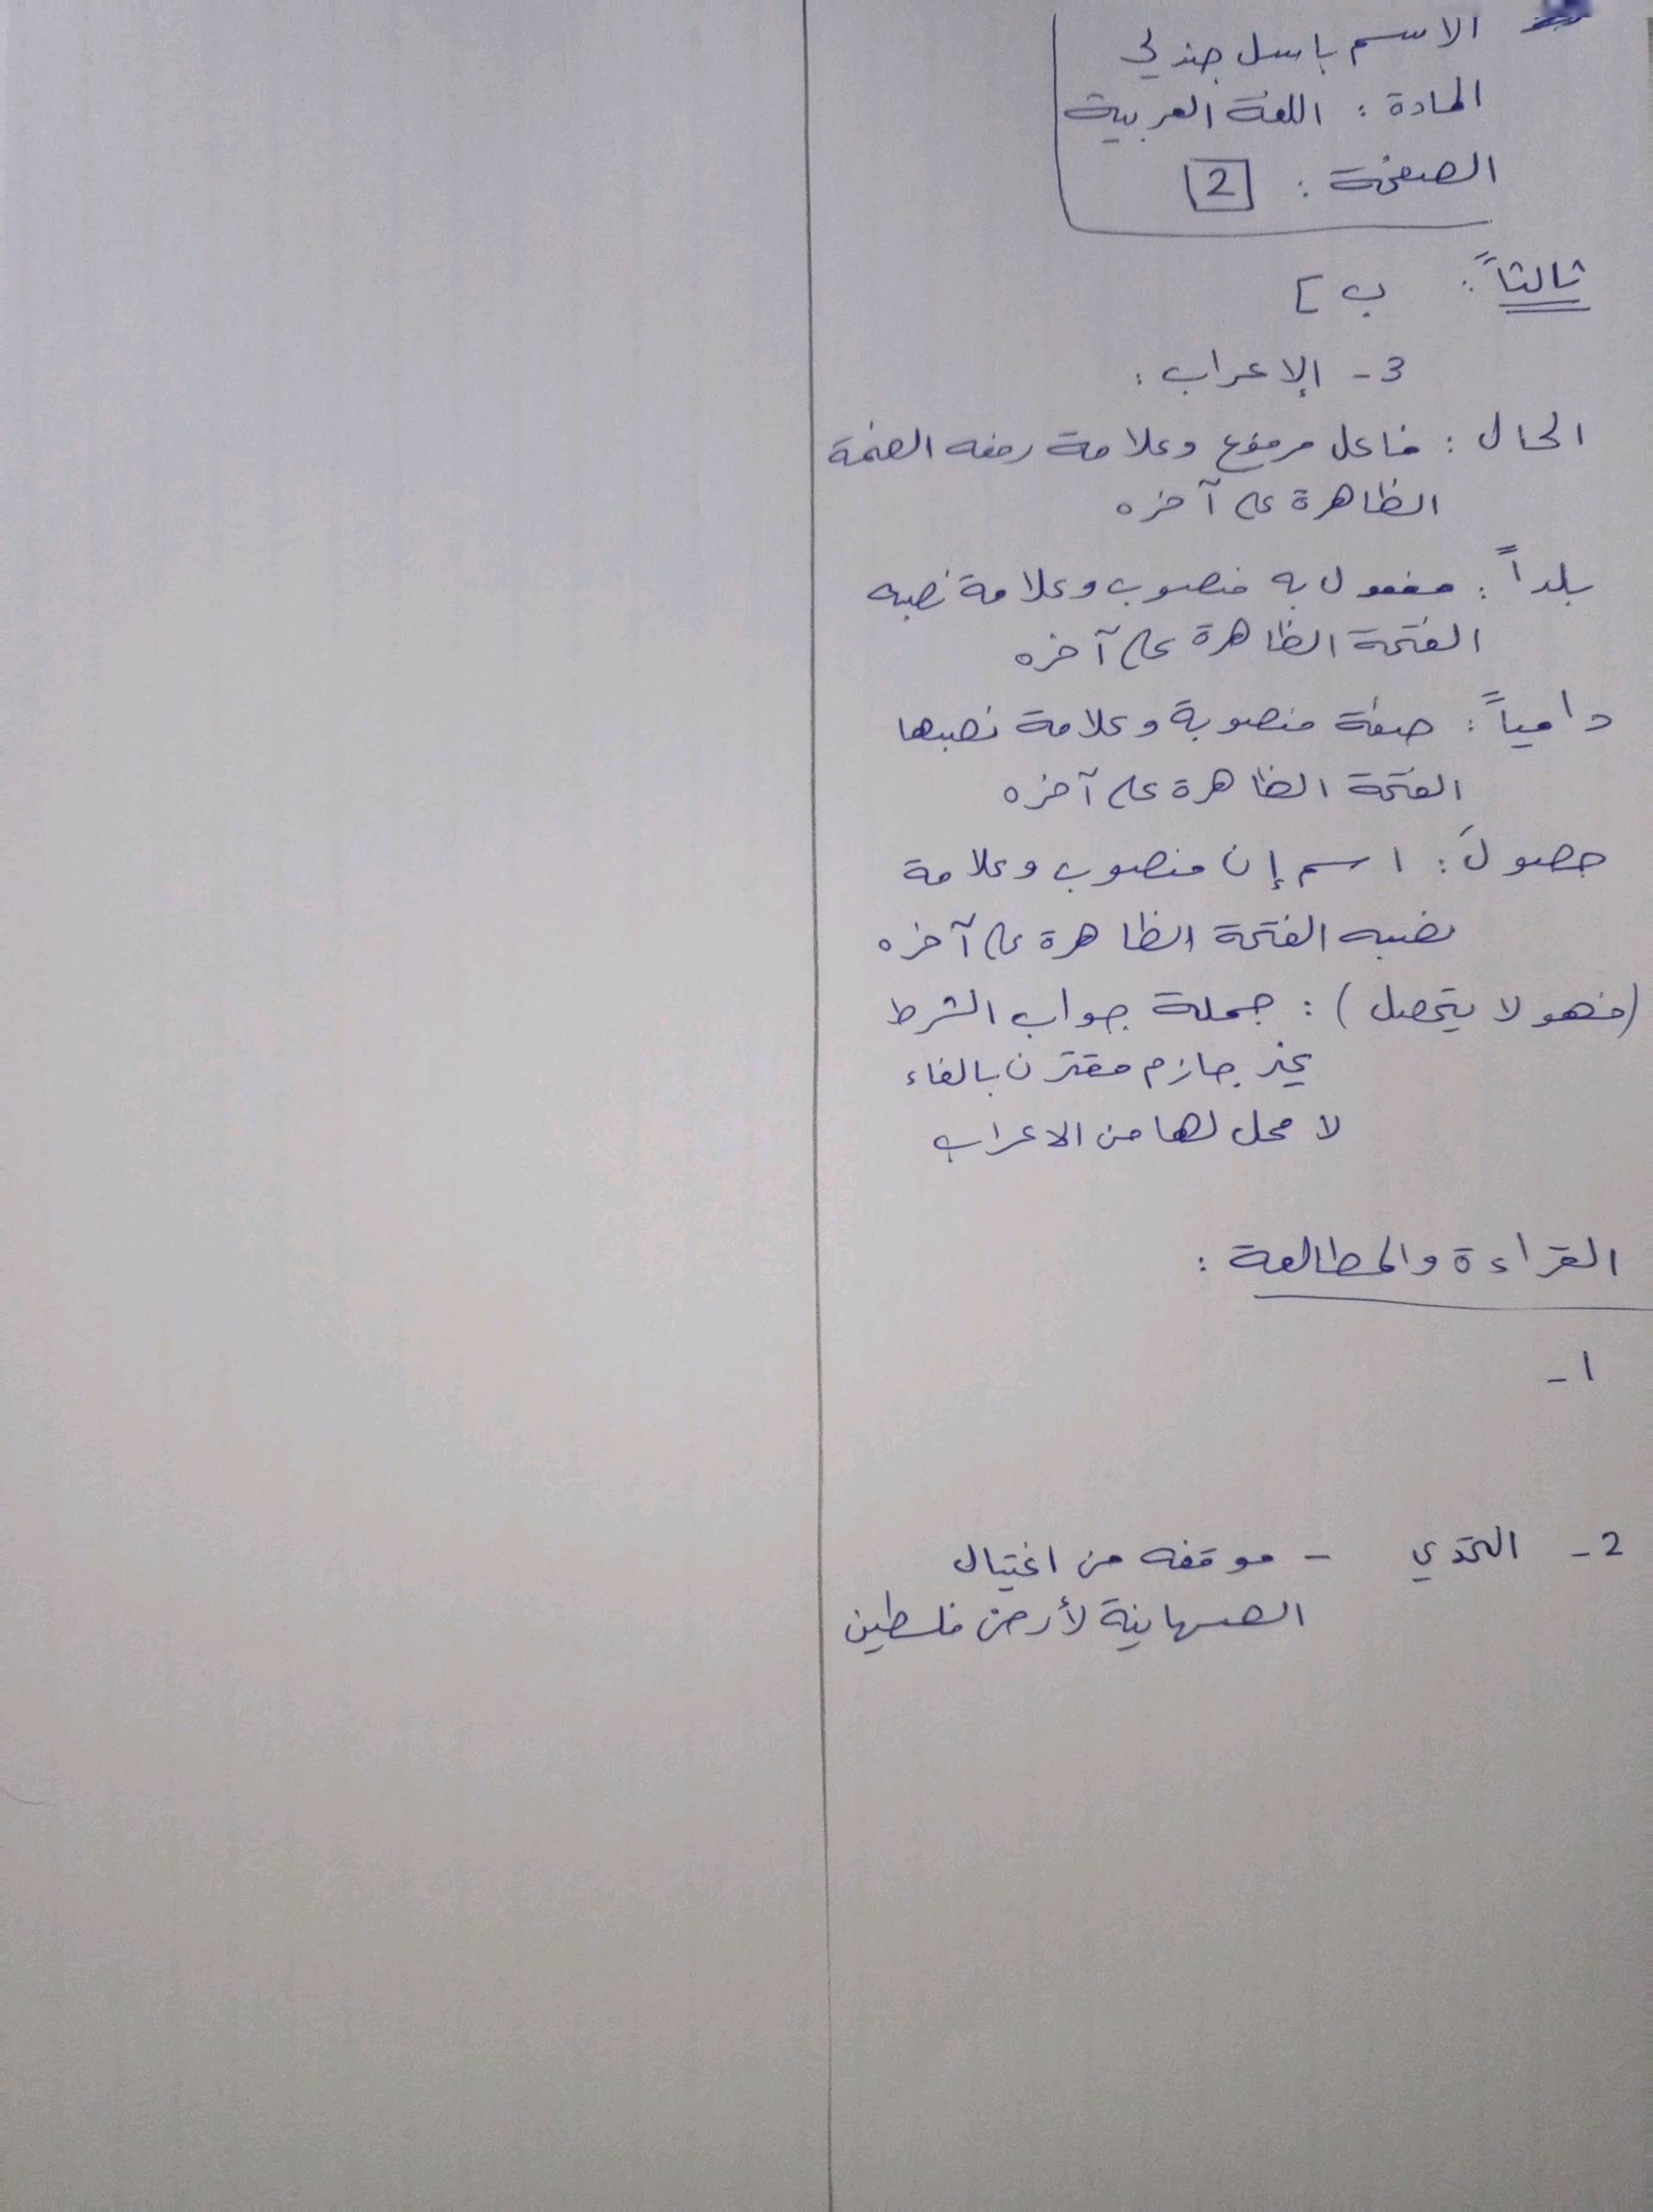 الاسم باسل جندلي
المادة : اللغة العربية
الصفحة : 2
ثالثاً : ب ]
3 - الإعراب :
الحال : فاعل مرفوع وعلامة رفعه الضمة
الظاهرة على آخره
بلداً : مفعول به منصوب وعلامة نصبه
الفتحة الظاهرة على آخره
دامياً : صفة منصوبة وعلامة نصبها
الفتحة الظاهرة على آخره
حصولَ : اسم إن منصوب وعلامة
نصبه الفتحة الظاهرة على آخره
(فهو لا يتحصل) : جملة جواب الشرط
غير جازم مقترن بالفاء
لا محل لها من الاعراب
القراءة والمطالعة :
1 -
2 - التحدي - موقفه من اغتيال
الصهاينة لأرض فلسطين